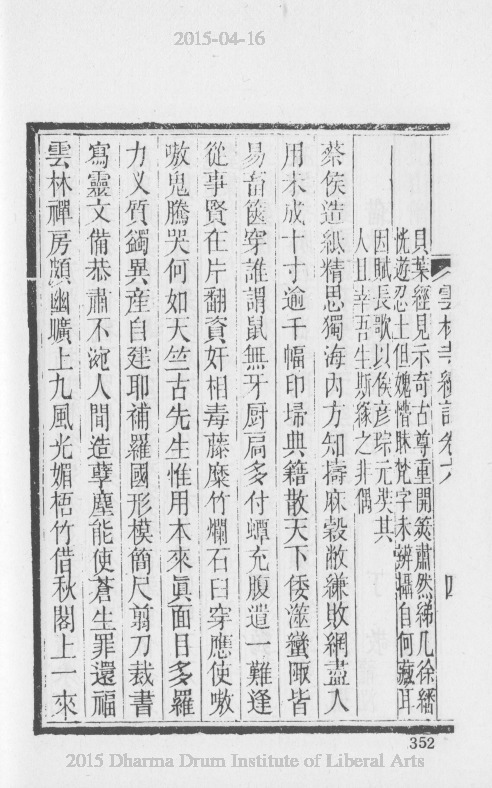 2015-04-16
雲林寺續誌卷六
四
貝葉經見示奇古尊重開篋肅然綈几徐繙
恍遊忍土但媿懵昧梵字未辨攝自何藏耳
因賦長歌以俟彦琮元奘其
人且幸吾生斯緣之非偶
蔡侯造紙精思獨海內方知擣麻穀敝縑敗網盡入
用未成十寸逾千幅印埽典籍散天下倭澨蠻陬皆
易畜篋穿誰謂鼠無牙厨扃多付蟫充腹遣一難逢
從事賢在片翻資奸相毒藤糜竹爛石臼穿應使嗷
嗷鬼騰哭何如天竺古先生惟用本來眞面目多羅
力义質蠲異産自建耶補羅國形模簡尺翦刀裁書
寫靈文備恭肅不涴人間造孽塵能使蒼生罪還福
雲林禪房頗幽曠上九風光媚梧竹借秋閣上一來
352
2015 Dharma Drum Institute of Liberal Arts